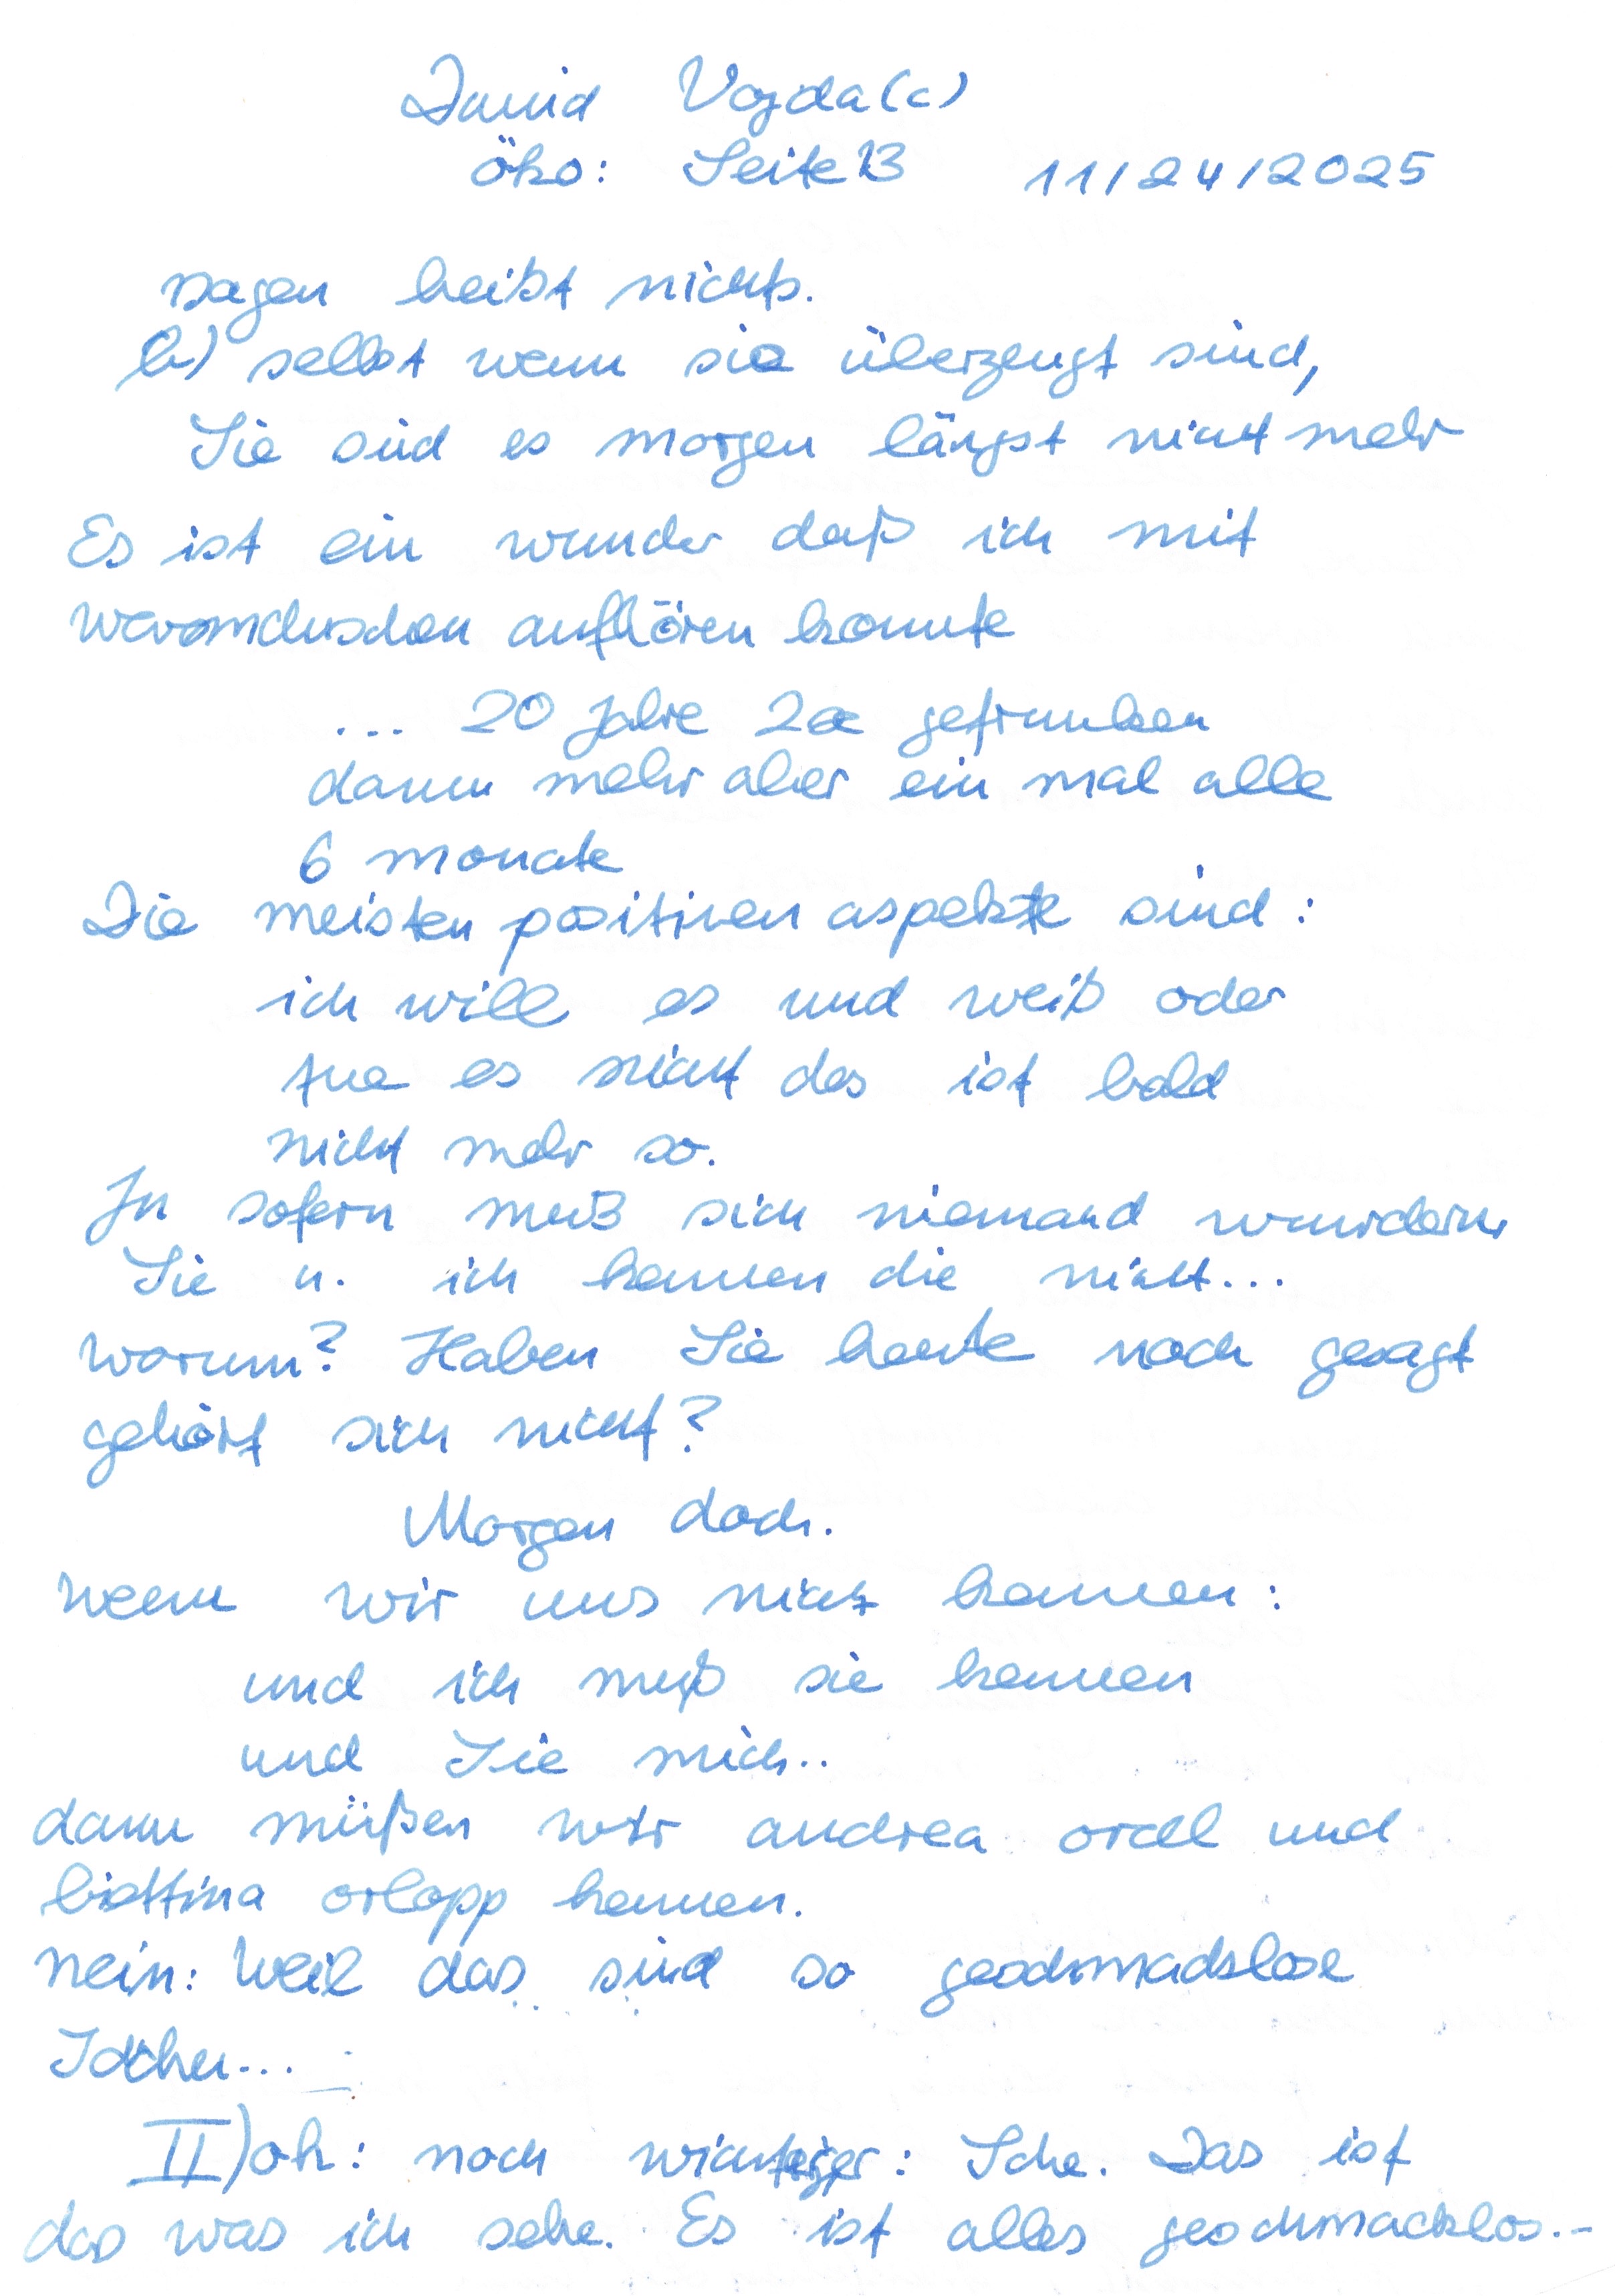 David Vajda (c)
öko: Seite 13 11/24/2025
sagen heißt nichts.
b) selbst wenn sie überzeugt sind,
Sie sind es morgen längst nicht mehr
Es ist ein wunder daß ich mit
aufhören konnte
... 20 Jahre getrunken
dann mehr aber ein mal alle
6 monate
Die meisten positiven aspekte sind:
ich will es und weiß oder
tue es nicht das ist bald
nicht mehr so.
In sofern muß sich niemand wundern
Sie u. ich kennen die nicht...
warum? Haben Sie heute noch gesagt
gehört sich nicht?
Morgen doch.
wenn wir uns nicht kennen:
und ich muß sie kennen
und Sie mich..
dann müßen wir andrea orcel und
bettina orlopp kennen.
nein: Weil das sind so geschmacklose
II) oh: noch wichtiger: Sehe. Das ist
das was ich sehe. Es ist alles geschmacklos.-